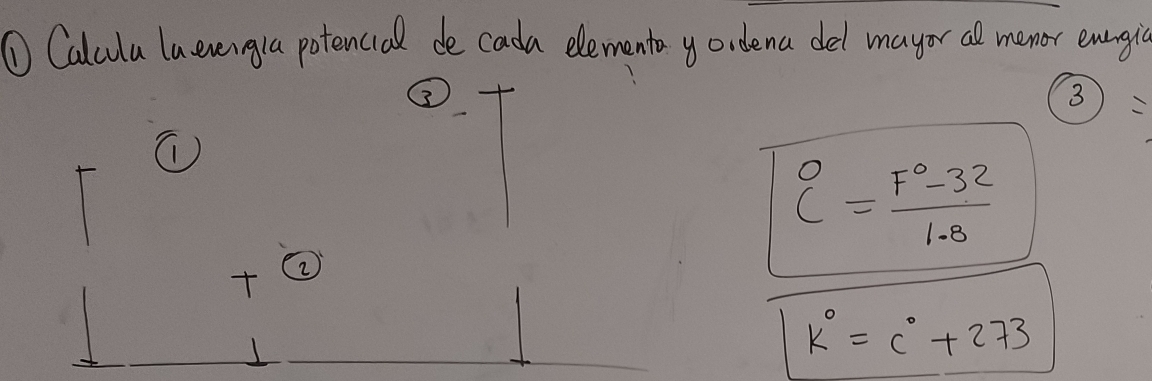 ① Calcula la energia potencial de cada elemento y ordena del mayor al menor energia
③
③ =
①
C° = F°-32
1.8
②
K° = C° + 273